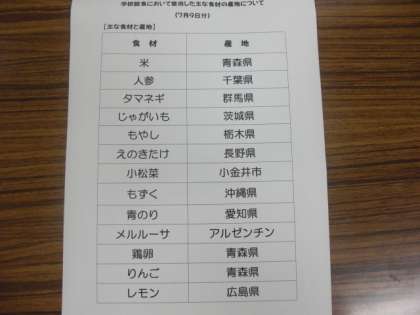 学校給食において使用した主な食材の産地について
(7月9日分)
【主な食材と産地】
食材 産地
米 青森県
人参 千葉県
タマネギ 群馬県
じゃがいも 茨城県
もやし 栃木県
えのきたけ 長野県
小松菜 小金井市
もずく 沖縄県
青のり 愛知県
メルルーサ アルゼンチン
鶏卵 青森県
りんご 青森県
レモン 広島県